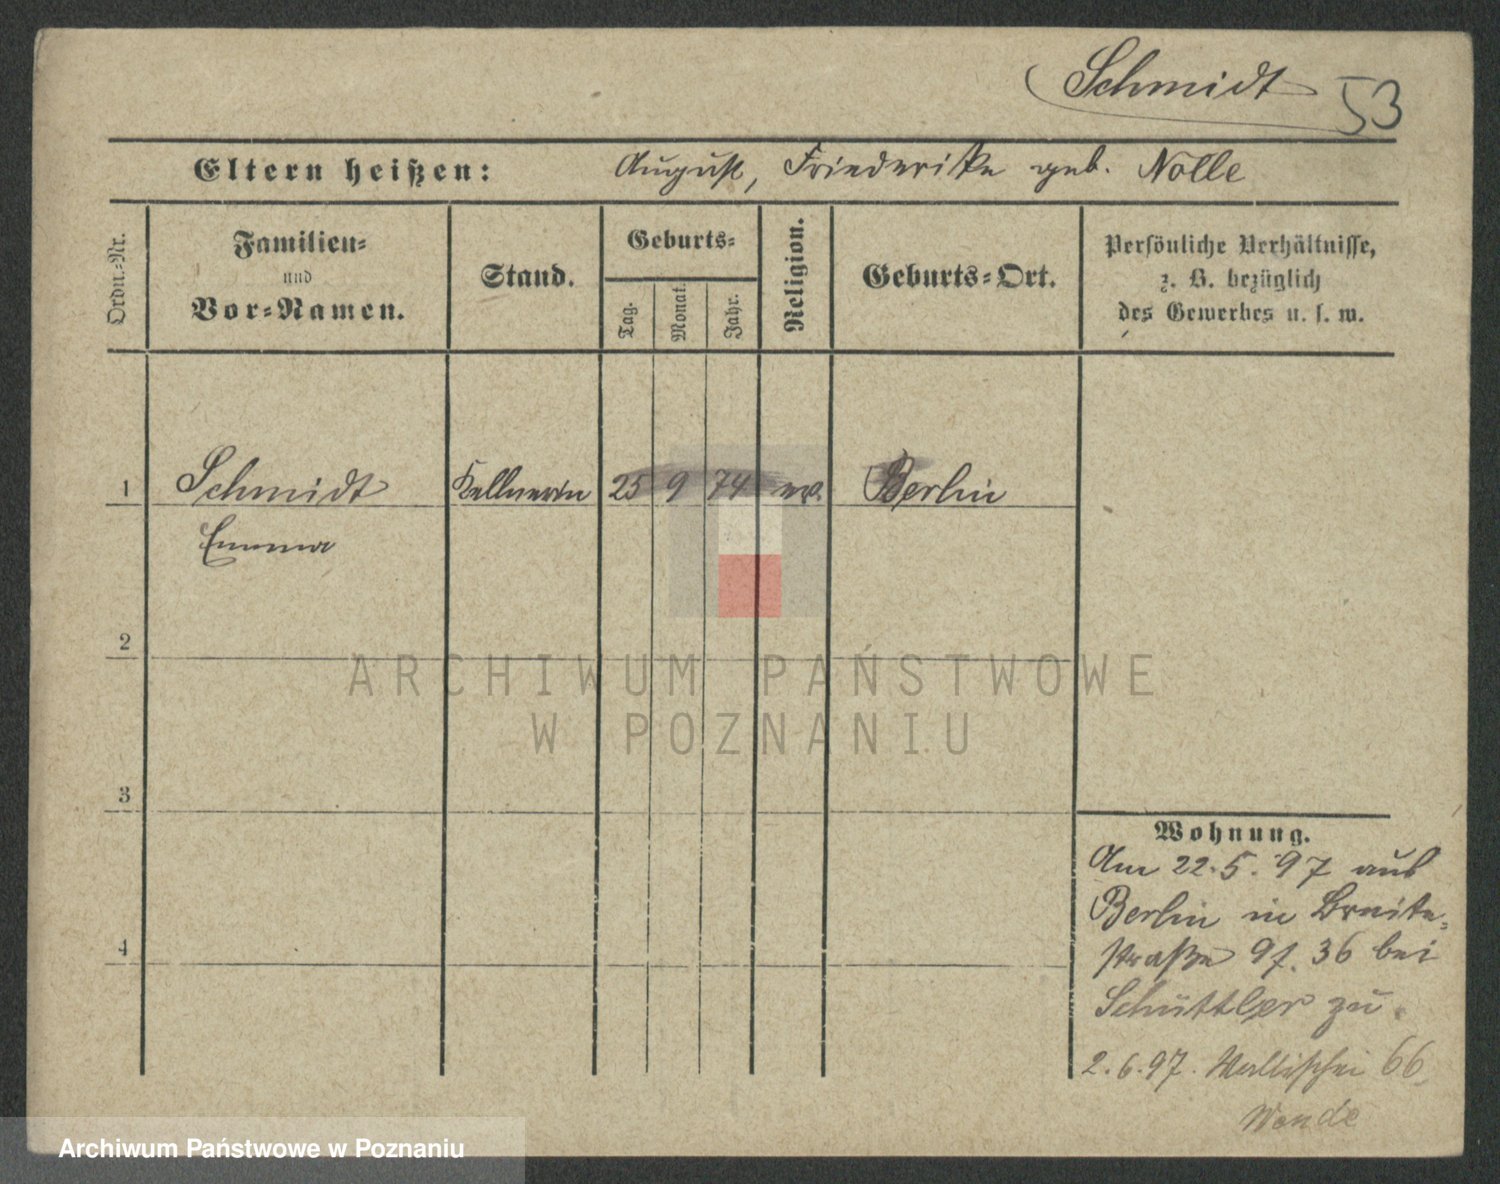 Schmidt 53
Eltern heißen: August, Friederike geb. Nolle
Ordn.-Nr.
Familien-
und
Vor-Namen.
Stand.
Geburts-
Tag. Monat. Jahr.
Religion.
Geburts-Ort.
Persönliche Verhältnisse,
z. B. bezüglich
des Gewerbes u. s. w.
1 Schmidt Kellnerin 25 9 74 ev. Berlin
Emma
2
3
4
Wohnung.
Am 22.5.97 aus
Berlin in Breite-
straße 36 bei
Schüttler zu.
2.6.97. Wallischei 66
Wende
ARCHIWUM PAŃSTWOWE
W POZNANIU
Archiwum Państwowe w Poznaniu